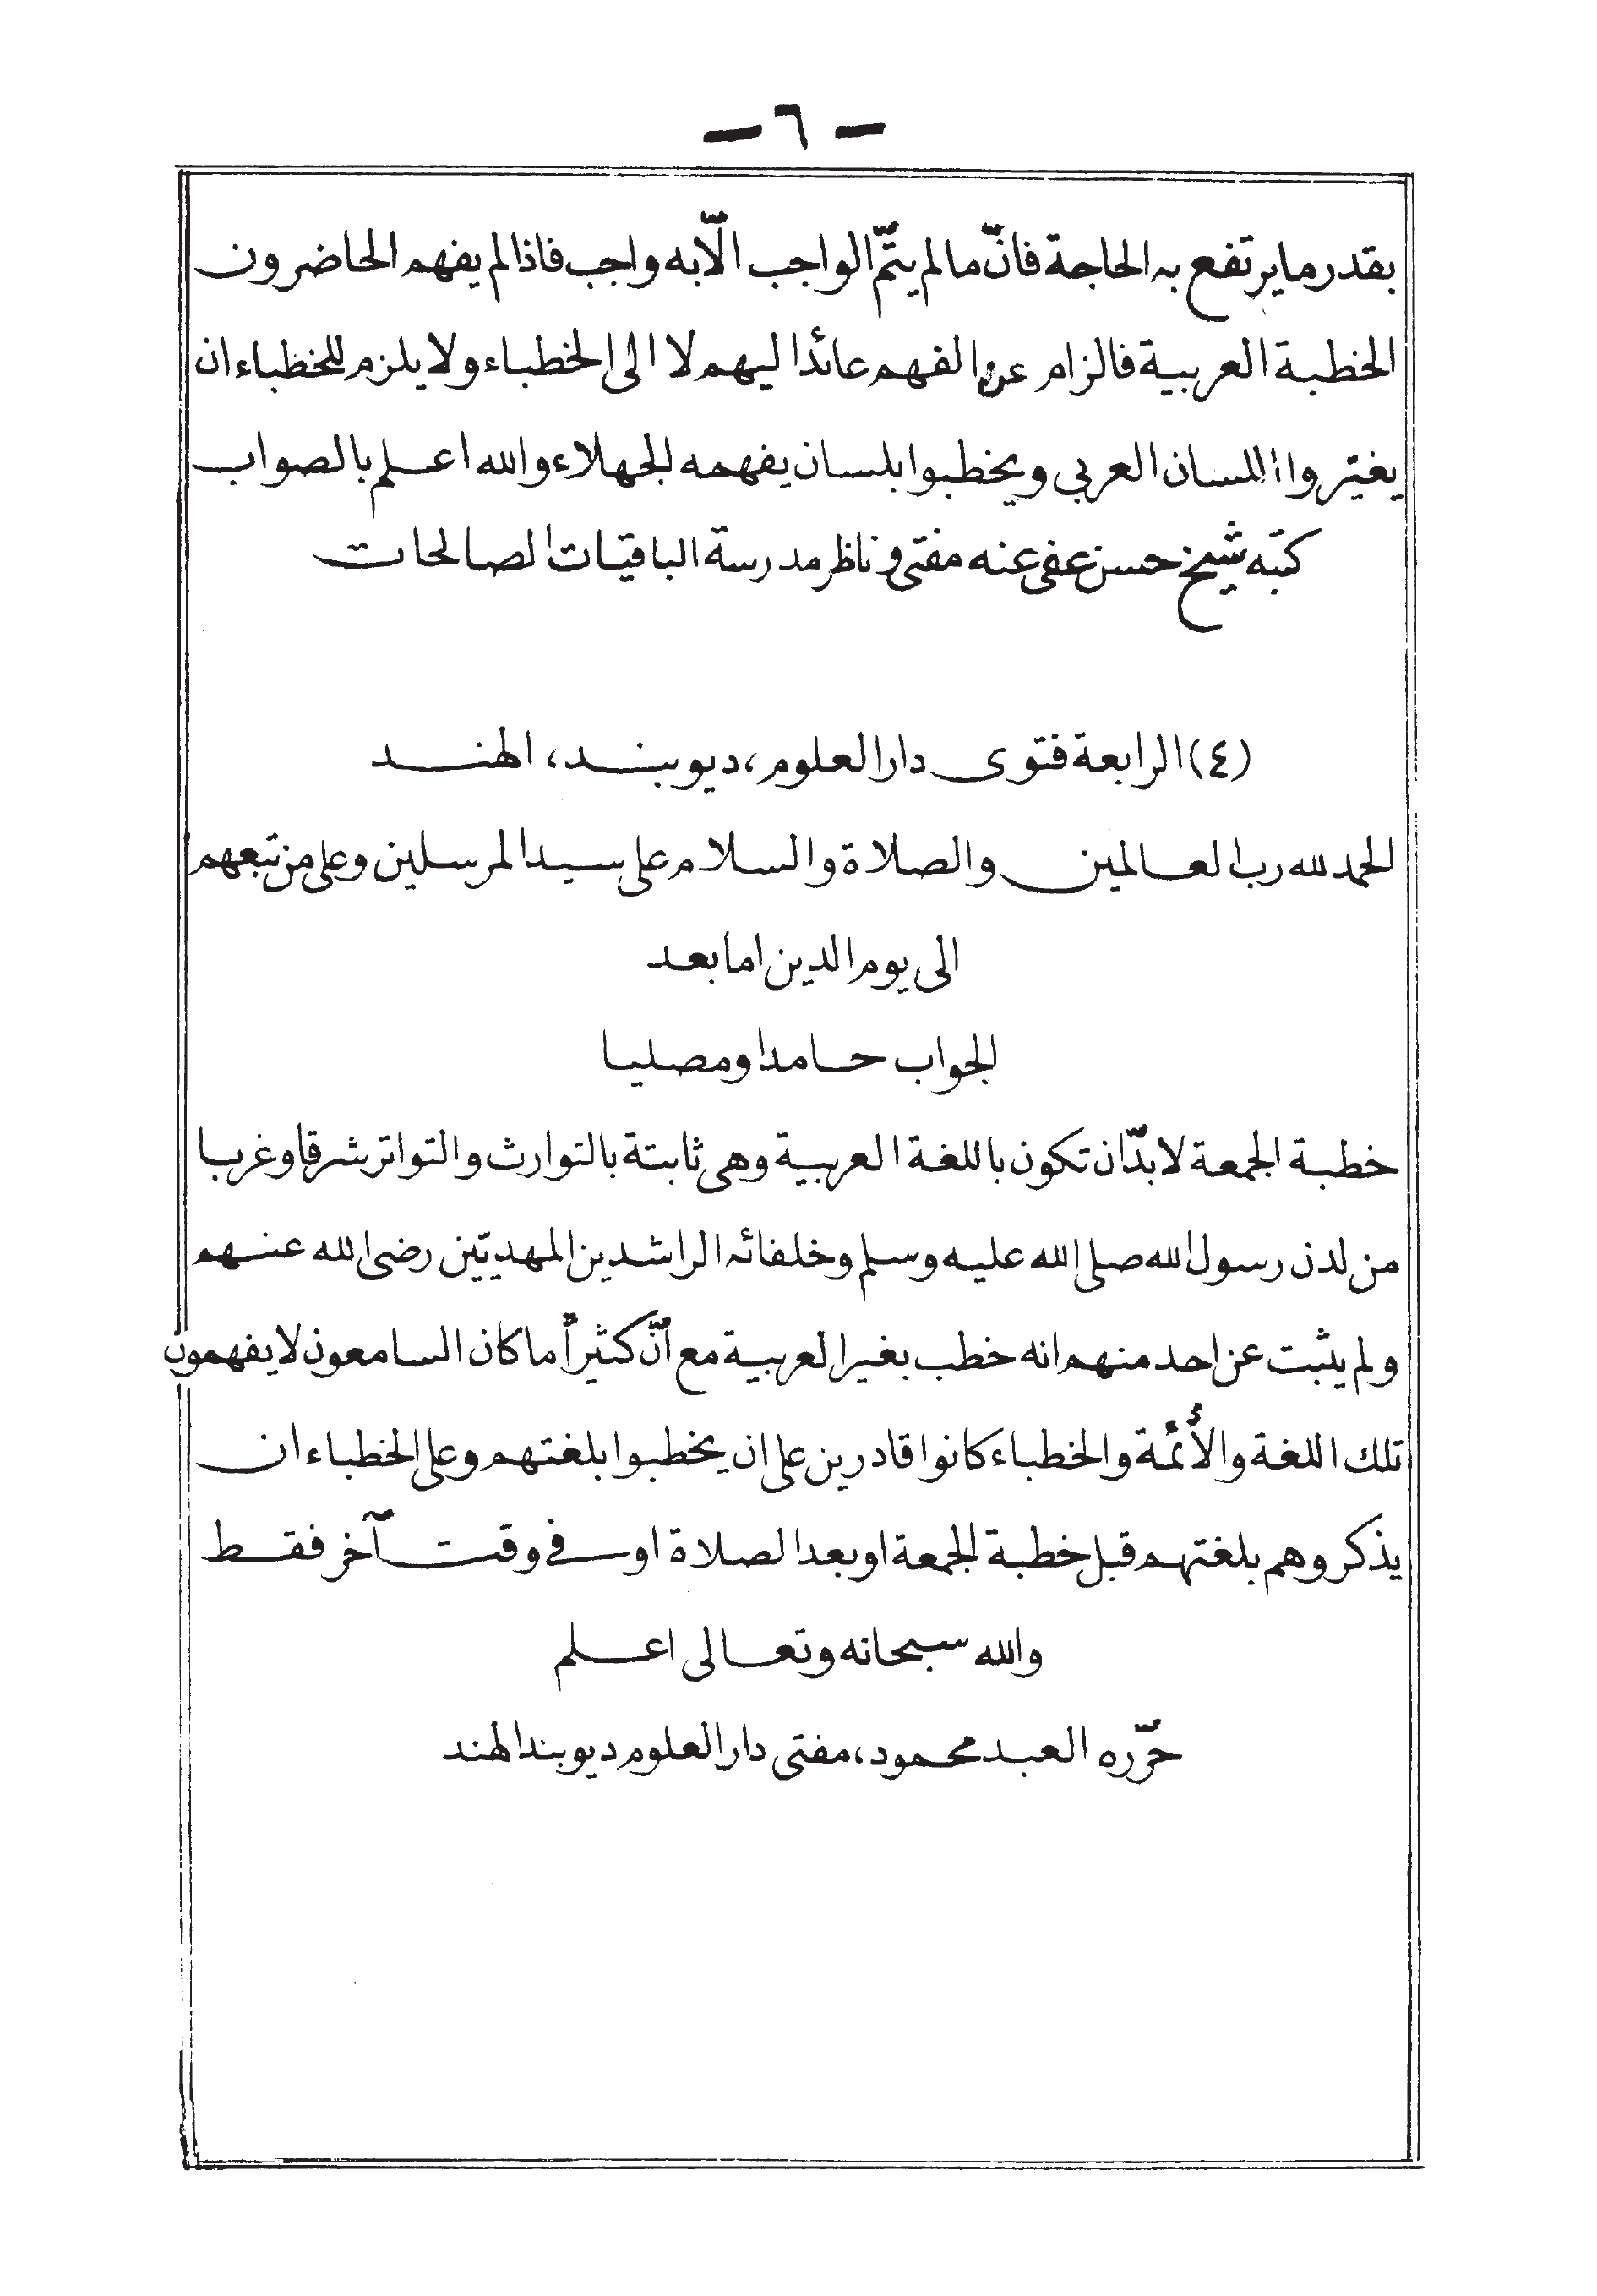 - ٦ -
بقدر ما يرتفع به الحاجة فانّ ما لم يتمّ الواجب الّا به واجب فاذا لم يفهم الحاضرون
الخطبة العربية فالزام عدم الفهم عائد اليهم لا الى الخطباء ولا يلزم للخطباء ان
يغيّروا اللسان العربي ويخطبوا بلسان يفهمه الجهلاء والله اعلم بالصواب
كتبه شيخ حسن عفى عنه مفتى وناظر مدرسة الباقيات الصالحات
(٤) الرابعة فتوى دار العلوم، ديوبند، الهند
الحمد لله رب العالمين والصلاة والسلام على سيد المرسلين وعلى من تبعهم
الى يوم الدين اما بعد
الجواب حامدا ومصليا
خطبة الجمعة لا بدّ ان تكون باللغة العربية وهى ثابتة بالتوارث والتواتر شرقا وغربا
من لدن رسول الله صلى الله عليه وسلم وخلفائه الراشدين المهديّين رضى الله عنهم
ولم يثبت عن احد منهم انه خطب بغير العربية مع أنّ كثيراً ما كان السامعون لا يفهمون
تلك اللغة والأئمة والخطباء كانوا قادرين على ان يخطبوا بلغتهم وعلى الخطباء ان
يذكروهم بلغتهم قبل خطبة الجمعة او بعد الصلاة او فى وقت آخر فقط
والله سبحانه وتعالى اعلم
حرّره العبد محمود، مفتى دار العلوم ديوبند الهند